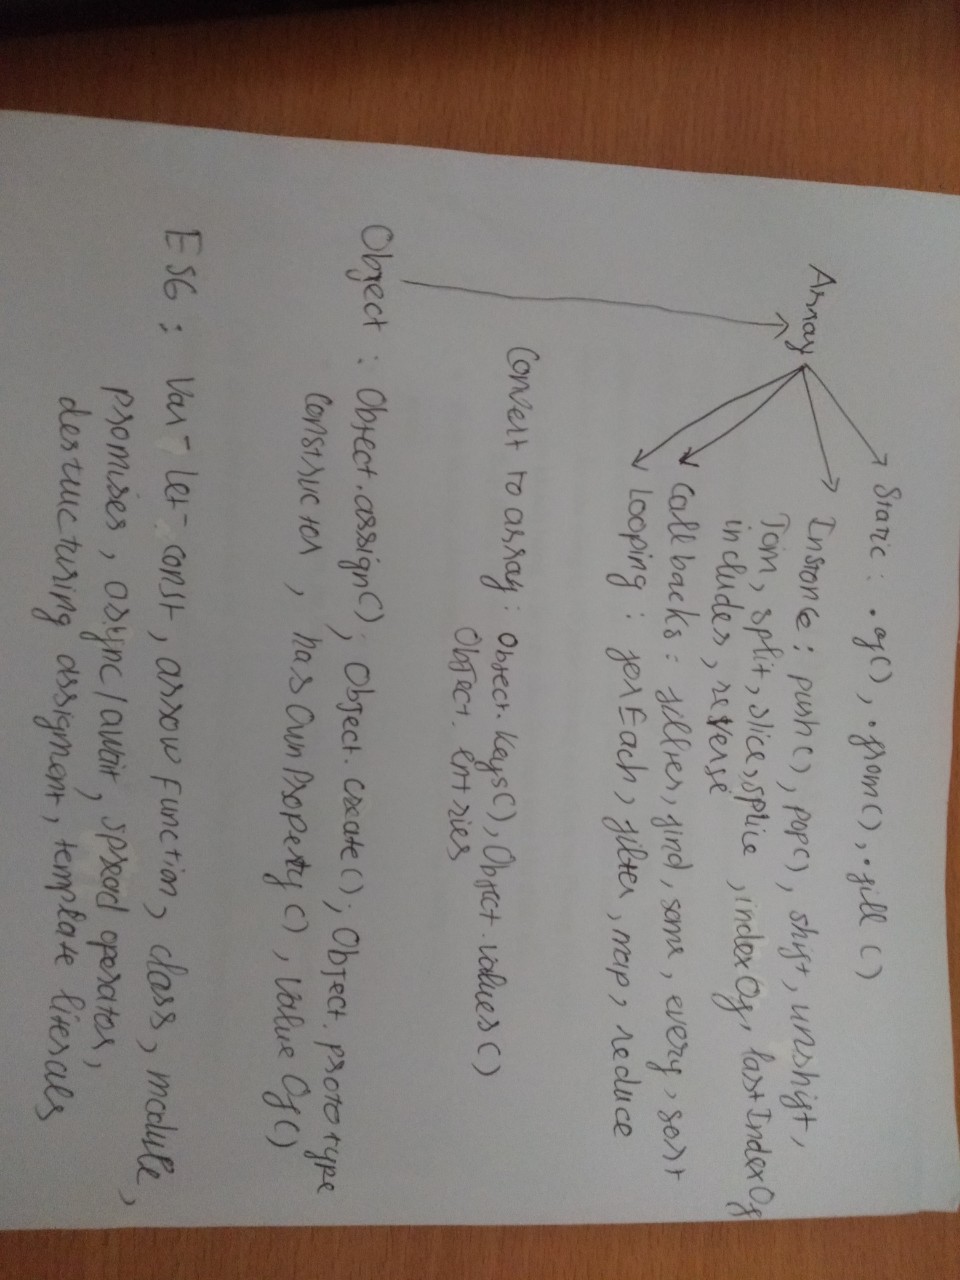 Array
Static : .of(), .from(), .fill()
Instance : push(), pop(), shift, unshift,
Join, split, slice, splice, indexOf, lastIndexOf
includes, reverse
Callbacks : filter, find, some, every, sort
Looping : forEach, filter, map, reduce
Convert to array : Object.keys(), Object.values()
Object.entries
Object : Object.assign(), Object.create(), Object.prototype
constructor, hasOwnProperty(), valueOf()
ES6 : Var - let - const, arrow function, class, module,
promises, async/await, spread operator,
destructuring assignment, template literals